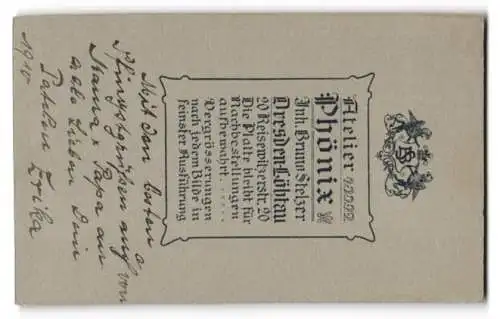 Atelier
Phönix
Inh. Bruno Stelzer
Dresden-Löbtau
20 Reisewitzerstr. 20
Die Platte bleibt für
Nachbestellungen
aufbewahrt......
Vergrösserungen
nach jedem Bilde in
feinster Ausführung
Mit den besten
Pfingstgrüßen auf von
Mama & Papa an
alle Lieben Dein
Patchen Erika
1910